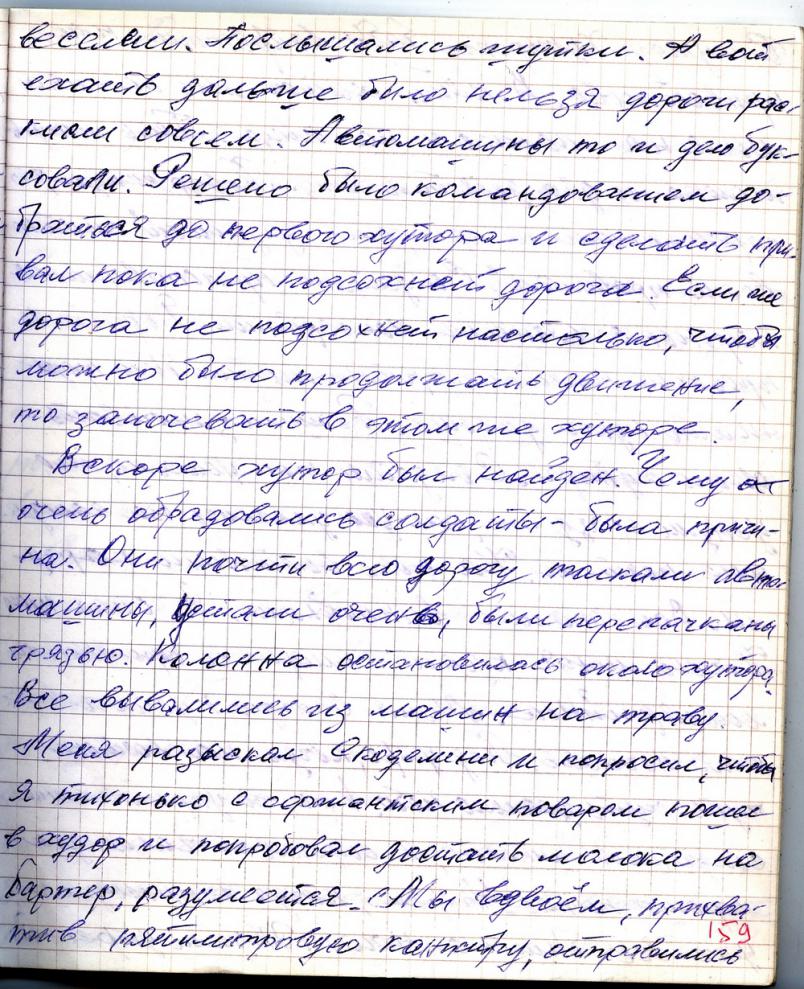 веселыи. Послышались шутки. А вот
ехать дальше было нельзя дороги рас-
кисли совсем. Автомашины то и дело бук-
совали. Решено было командованием до-
браться до первого хутора и сделать при-
вал пока не подсохнет дорога. Если же
дорога не подсохнет настолько, чтобы
можно было продолжать движение,
то заночевать в этом же хуторе.
Вскоре хутор был найден. Чему
очень обрадовались солдаты - была причи-
на. Они почти всю дорогу толкали авто-
машины, устали очень, были перепачканы
грязью. Колонна остановилась около хутора.
Все вывалились из машин на траву.
Меня разыскал и попросил, чтобы
я тихонько с сержантским поваром пошел
в худор и попробовал достать молока на
бартер, разумеется. Мы вдвоём, прихва-
тив пятилитровую канистру, отправились
159